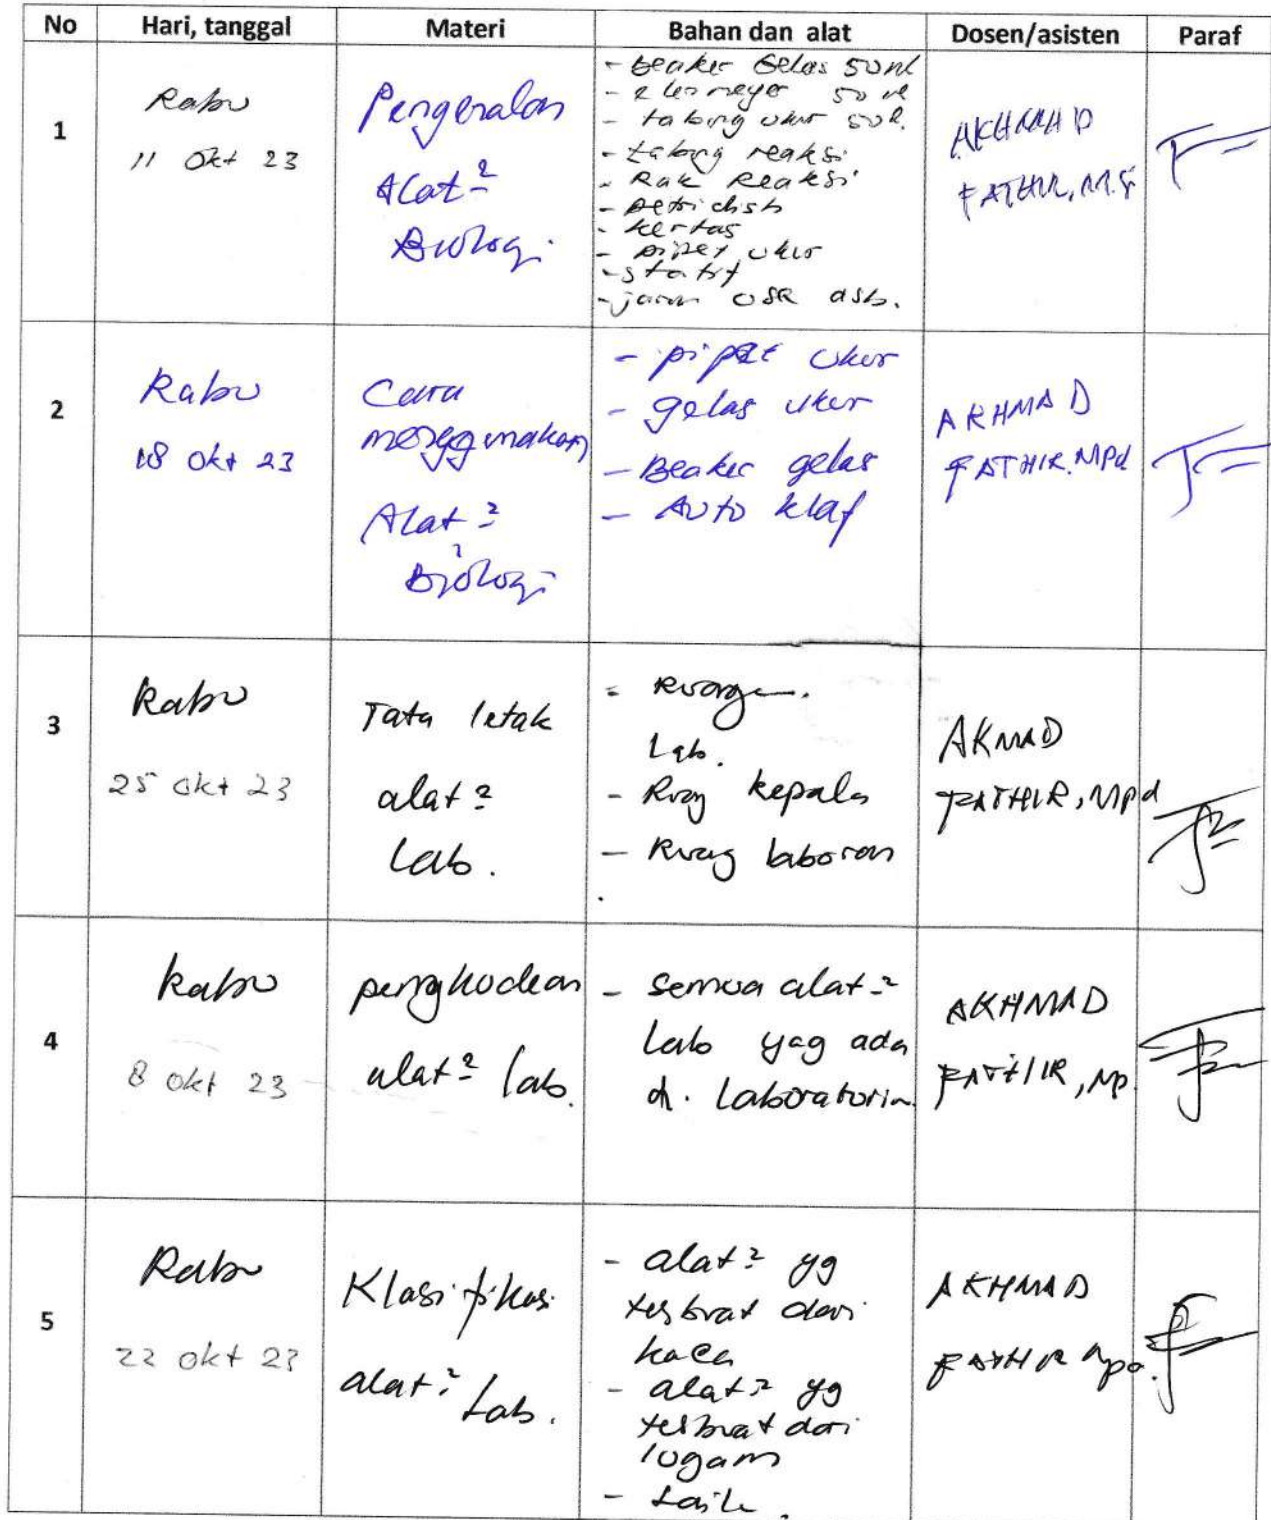 No Hari, tanggal Materi Bahan dan alat Dosen/asisten Paraf
1
Rabu
11 Okt 23
Pengenalan
Alat²
Biologi
- Beaker Gelas 50ml
- 50 ml
- tabung ukur
- tabung reaksi
- Rak Reaksi
- petri dish
- kertas
- pipet ukur
- statif
- dsb.
AKHMAD
FATHIR,
2
Rabu
18 Okt 23
Cara
menggunakan
Alat²
Biologi
- pipet ukur
- gelas ukur
- Beaker gelas
- Auto klaf
AKHMAD
FATHIR. MPd
3
Rabu
25 Okt 23
Tata letak
alat²
lab.
- Ruangan
Lab.
- Ruang kepala
- Ruang laboran
AKMAD
FATHIR, MPd
4
Rabu
8 Okt 23
pengkodean
alat² lab.
- semua alat²
lab yag ada
di
AKHMAD
FATHIR, Mp.
5
Rabu
22 Okt 23
Klasifikasi
alat² Lab.
- alat² yg
terbuat dari
kaca
- alat² yg
terbuat dari
logam
-
AKHMAD
FATHIR Mpd.